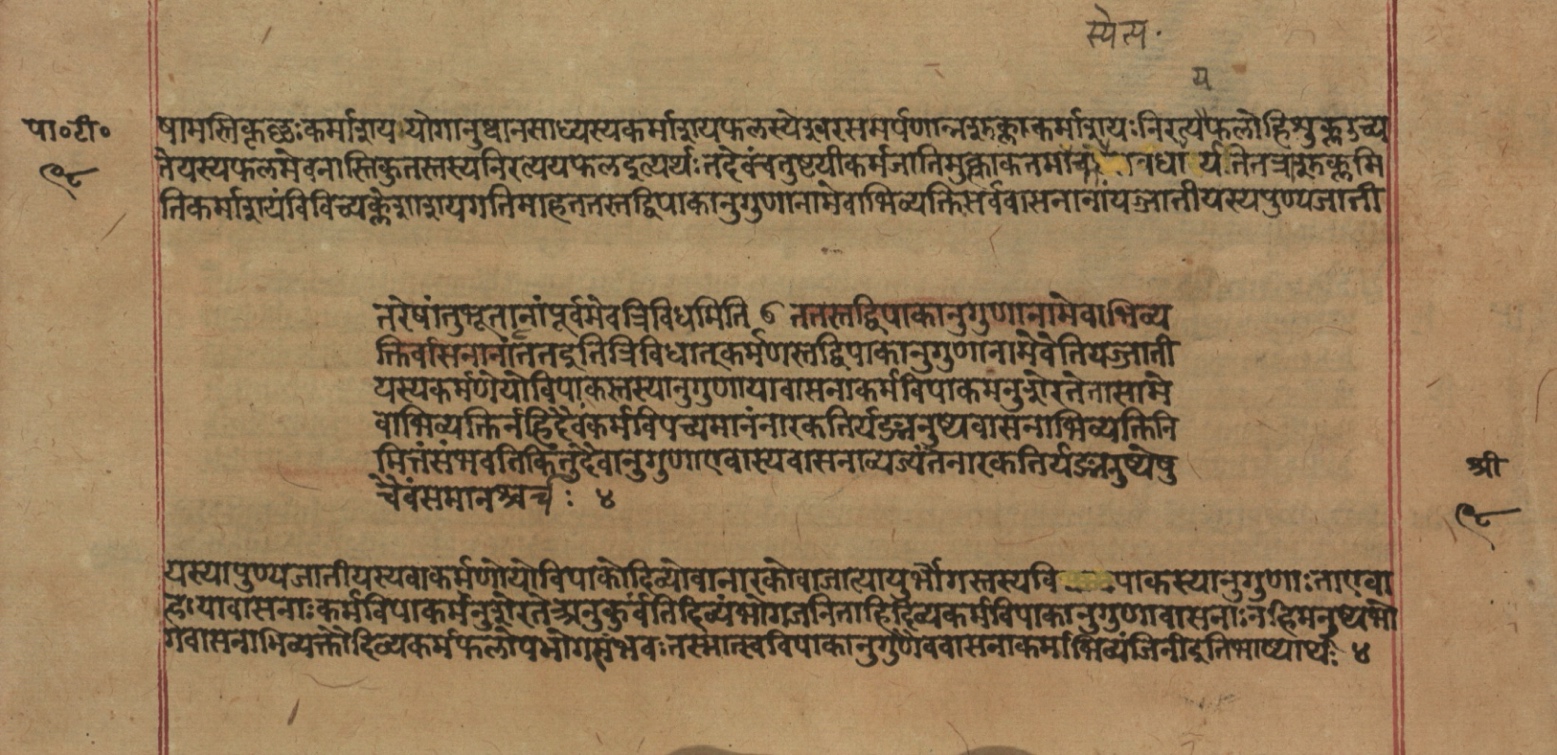 स्येत्य॰
य
पा॰टी॰
९८
षामस्तिकृछ्रःकर्माशय योगानुष्ठानसाध्यस्यकर्माशयफलस्येश्वरसमर्पणान्नशुक्लाकर्माशयःनिरत्यैफलोहिशुक्लउच्य
तेयस्यफलमेवनास्तिकुतस्तस्यनिरत्ययफलइत्यर्थःतदेवंचतुष्टयीकर्मजातिमुक्त्वाकतमाचे वधा र्यतेतत्राशुक्लमि
तिकर्माशयंविविच्यक्लेशाशयगतिमाहततस्तद्विपाकानुगुणानामेवाभिव्यक्तिसर्ववासनानांयज्जातीयस्यपुण्यजाती
तरेषांतुभूतानांपूर्वमेवत्रिविधमिति ७ ततस्तद्विपाकानुगुणानामेवाभिव्य
क्तिर्वासनानांततइतित्रिविधात्कर्मणस्तद्विपाकानुगुणानामेवेतियज्जाती
यस्यकर्मणोयोविपाकस्तस्यानुगुणायावासनाकर्मविपाकमनुशेरतेतासामे
वाभिव्यक्तिर्नहिदैवंकर्मविपच्यमानंनारकतिर्यङ्मनुष्यवासनाभिव्यक्तिनि
मित्तंसंभवतिकिंतुंदैवानुगुणाएवास्यवासनाव्यज्यंतेनारकतिर्यङ्मनुष्येषु
चैवंसमानश्चर्चः ४
श्री
९८
यस्यापुण्यजातीयस्यवाकर्मणोयोविपाकोदिव्योवानारकोवाजात्यायुर्भोगस्तस्यवि पाकस्यानुगुणाःताएवा
हःयावासनाःकर्मविपाकमनुशेरतेअनुकुर्वंतिदिव्यंभोगजनिताहिदिव्यकर्मविपाकानुगुणावासनाःनहिमनुष्यभो
गवासनाभिव्यक्तौदिव्यकर्मफलोपभोगसंभवःतस्मात्स्वविपाकानुगुणैववासनाकर्माभिव्यंजिनीइतिभाष्यार्थः ४